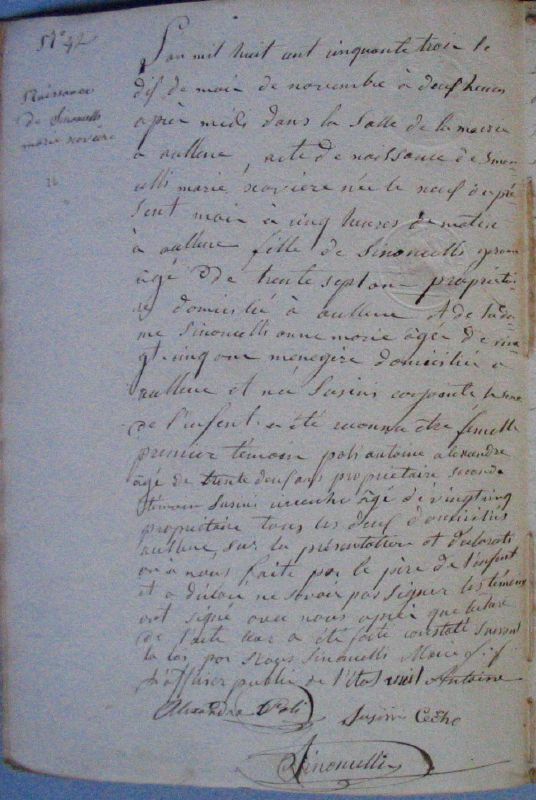 N° 42
Naissance
de Sinoncelli
marie xaviere
L'an mil huit cent cinquante trois le
dix de mois de novembre à deux heures
après midi dans la Salle de la mairie
à aullene, acte de naissance de Sinon-
celli marie, xaviere née le neuf de pré-
sent mois à cinq heures de matin
à aullene fille de Sinoncelli
âgé de trente sept ans propriétai-
re domicilié à aullene et de la da-
me Sinoncelli anne marie âgée de vin-
gt-cinq ans ménagère domiciliée à
aullene et née Susini le sexe
de l'enfent a été reconnu etre femelle
premier témoin poli antoine alexandre
âgé de trente deux ans propriétaire second
témoin Susini âgé de vingt cinq
propriétaire tous les deux domiciliés
aullene, sur la présentation et déclarati-
on à nous faite par le père de l'enfent
et a déclaré ne savoir pas signer les témoins
ont signé avec nous après que lecture
de l'acte leur a été faite constaté suivant
la loi par nous Sinoncelli Maire
d'officier public de l'état civil Antoine
Alexandre Poli
Susini
Sinoncelli